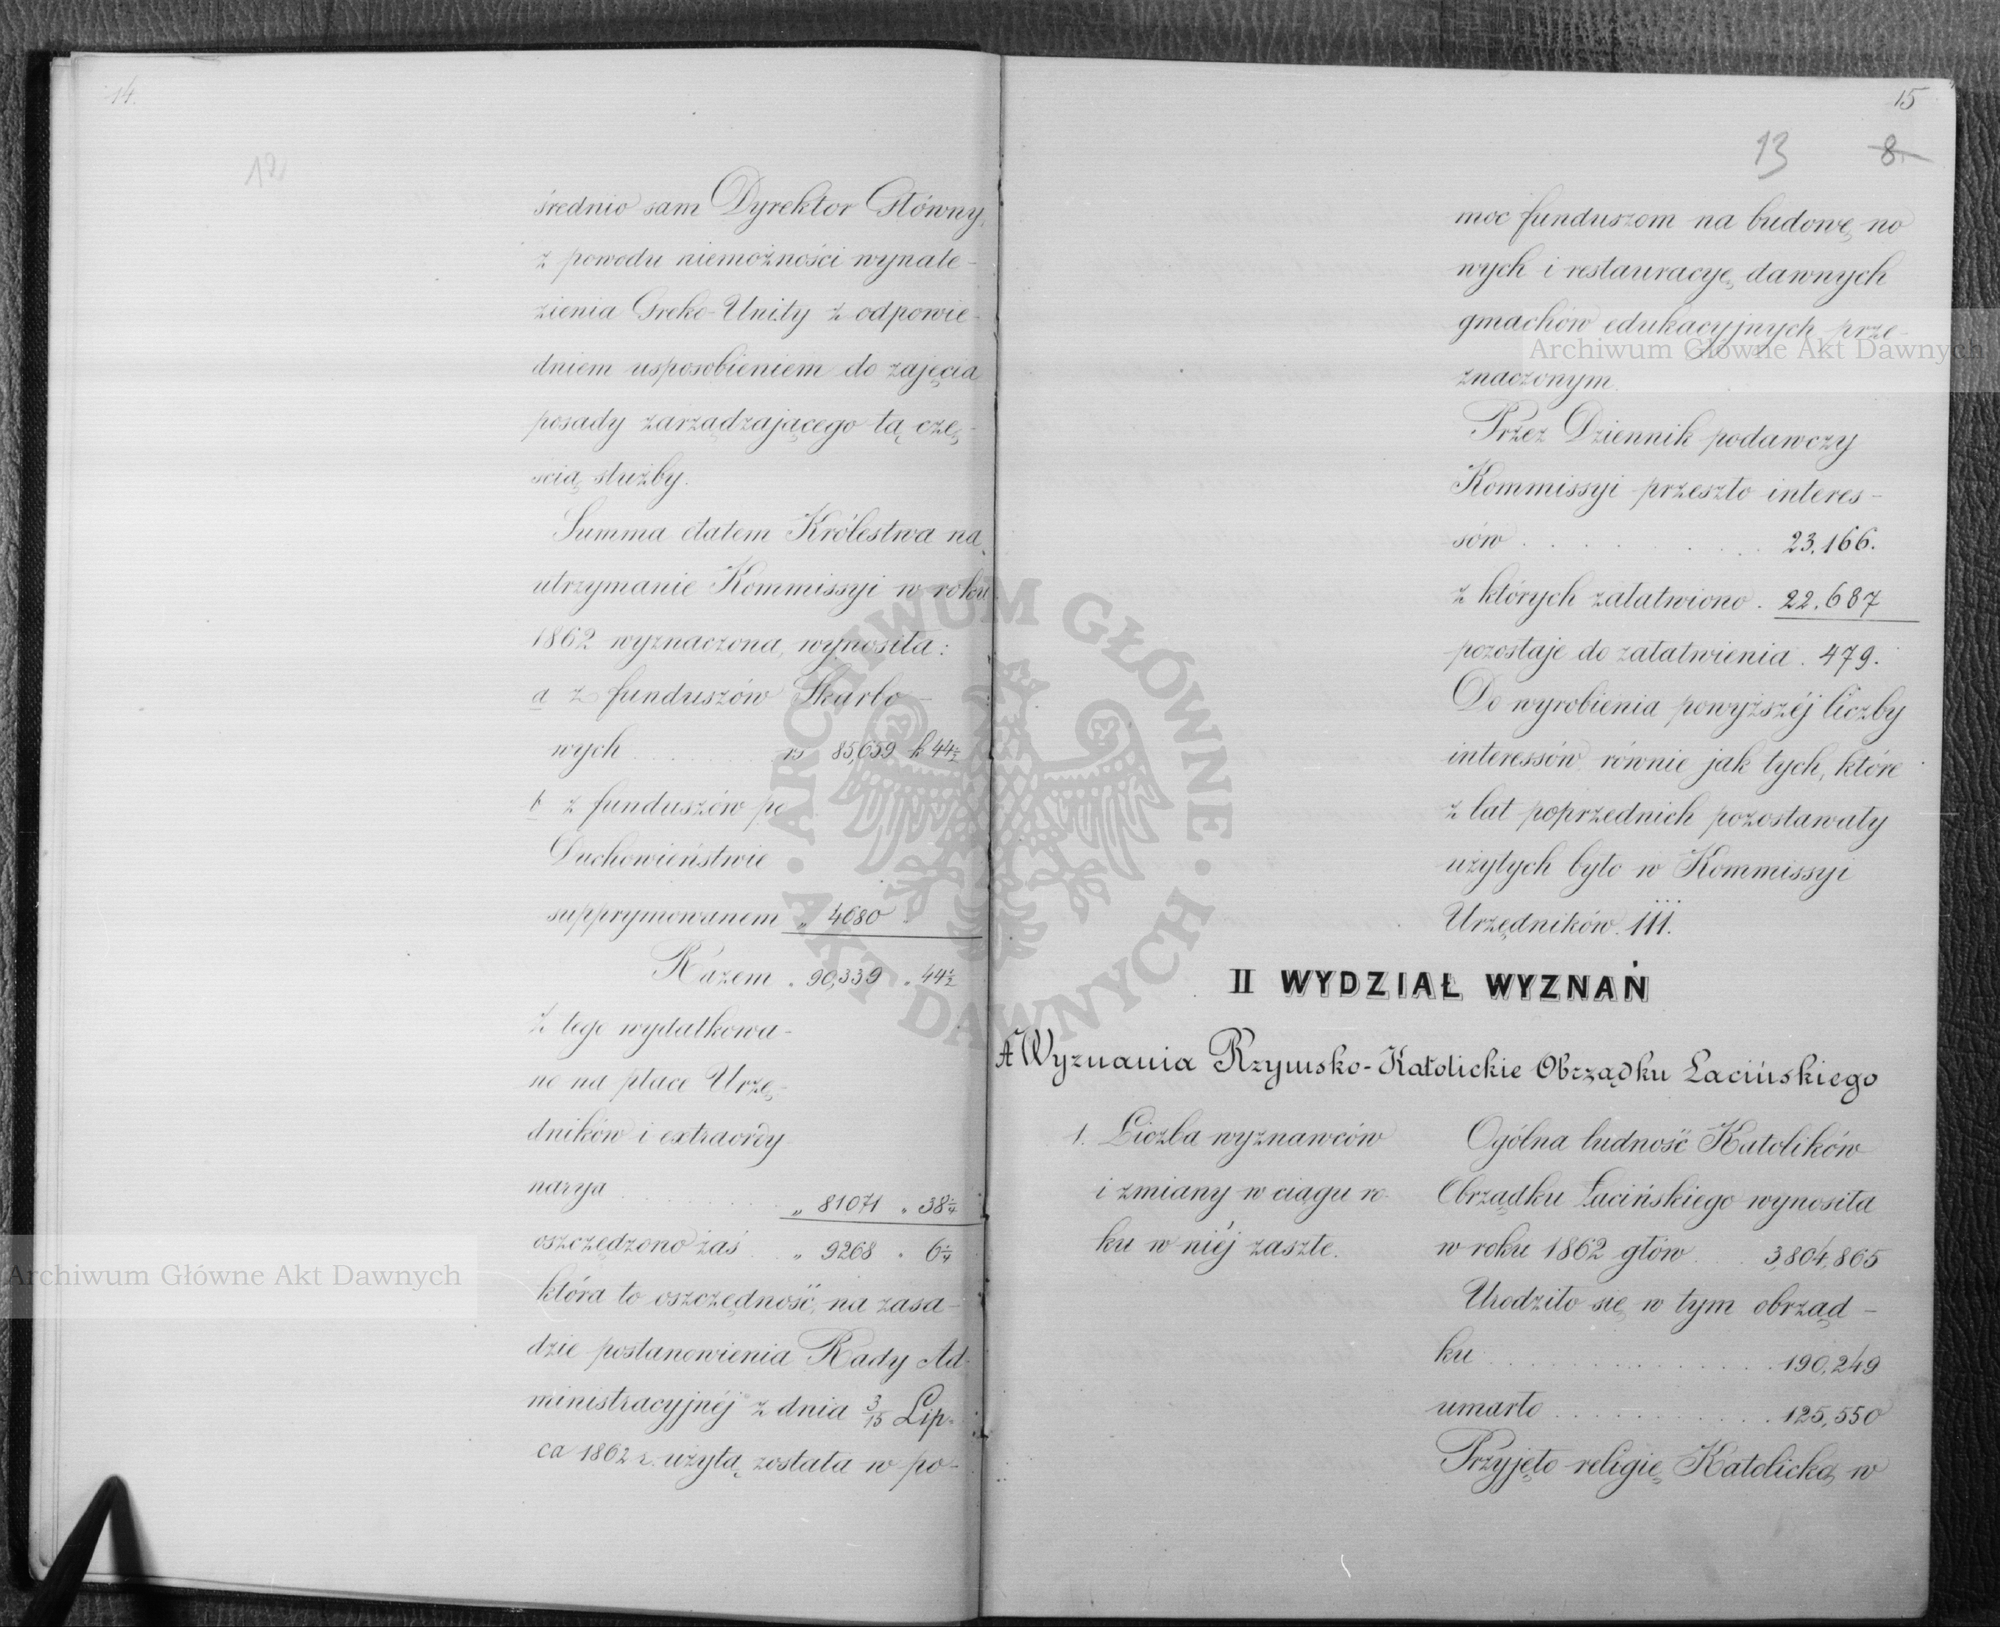 14.
12
średnio sam Dyrektor Główny,
z powodu niemożności wynale-
zienia Greko-Unity z odpowie-
dniem usposobieniem do zajęcia
posady zarządzającego tą czę-
ścią służby.
Summa etatem Królestwa na
utrzymanie Kommissyi w roku
1862 wyznaczona, wynosiła:
a z funduszów Skarbo-
wych . . . . . . . rs 85,659 k 44½
b z funduszów po
Duchowieństwie
supprymowanem „ 4680 „
Razem „ 90,339 „ 44½
Z tego wydatkowa-
no na płace Urzę-
dników i extraordy-
narya . . . . . . . „ 81071 „ 38¼
oszczędzono zaś . . „ 9268 „ 6¼
która to oszczędność, na zasa-
dzie postanowienia Rady Ad-
ministracyjnéj z dnia 3/15 Lip-
ca 1862 r. użytą została w po-
15
13 8.
moc funduszom na budowę no
wych i restauracyę dawnych
gmachów edukacyjnych prze-
znaczonym.
Przez Dziennik podawczy
Kommissyi przeszło interes-
sów . . . . . . . . 23,166.
z których załatwiono . 22,687
pozostaje do załatwienia . 479.
Do wyrobienia powyższéj liczby
interessów równie jak tych, które
z lat poprzednich pozostawały
użytych było w Kommissyi
Urzędników. 111.
II WYDZIAŁ WYZNAŃ
A Wyznania Rzymsko-Katolickie Obrządku Łacińskiego
1. Liczba wyznawców
i zmiany w ciągu ro-
ku w niéj zaszłe.
Ogólna ludność Katolików
Obrządku Łacińskiego wynosiła
w roku 1862 głów . . . 3,804,865
Urodziło się w tym obrząd-
ku . . . . . . . . . . . 190,249
umarło . . . . . . . . . 125,550
Przyjęto religię Katolicką w
Archiwum Główne Akt Dawnych
Archiwum Główne Akt Dawnych
ARCHIWUM GŁÓWNE AKT DAWNYCH